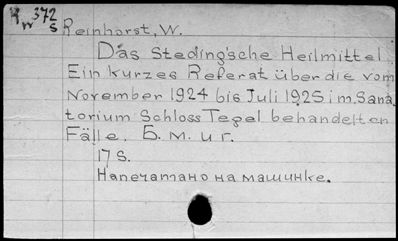 Kw 372
s
Reinhorst, W.
Das Steding'sche Heilmittel.
Ein kurzes Referat über die vom
November 1924 bis Juli 1925 im Sana-
torium Schloss Tegel behandelten
Fälle. Б. м. и г.
17 S.
Напечатано на машинке.